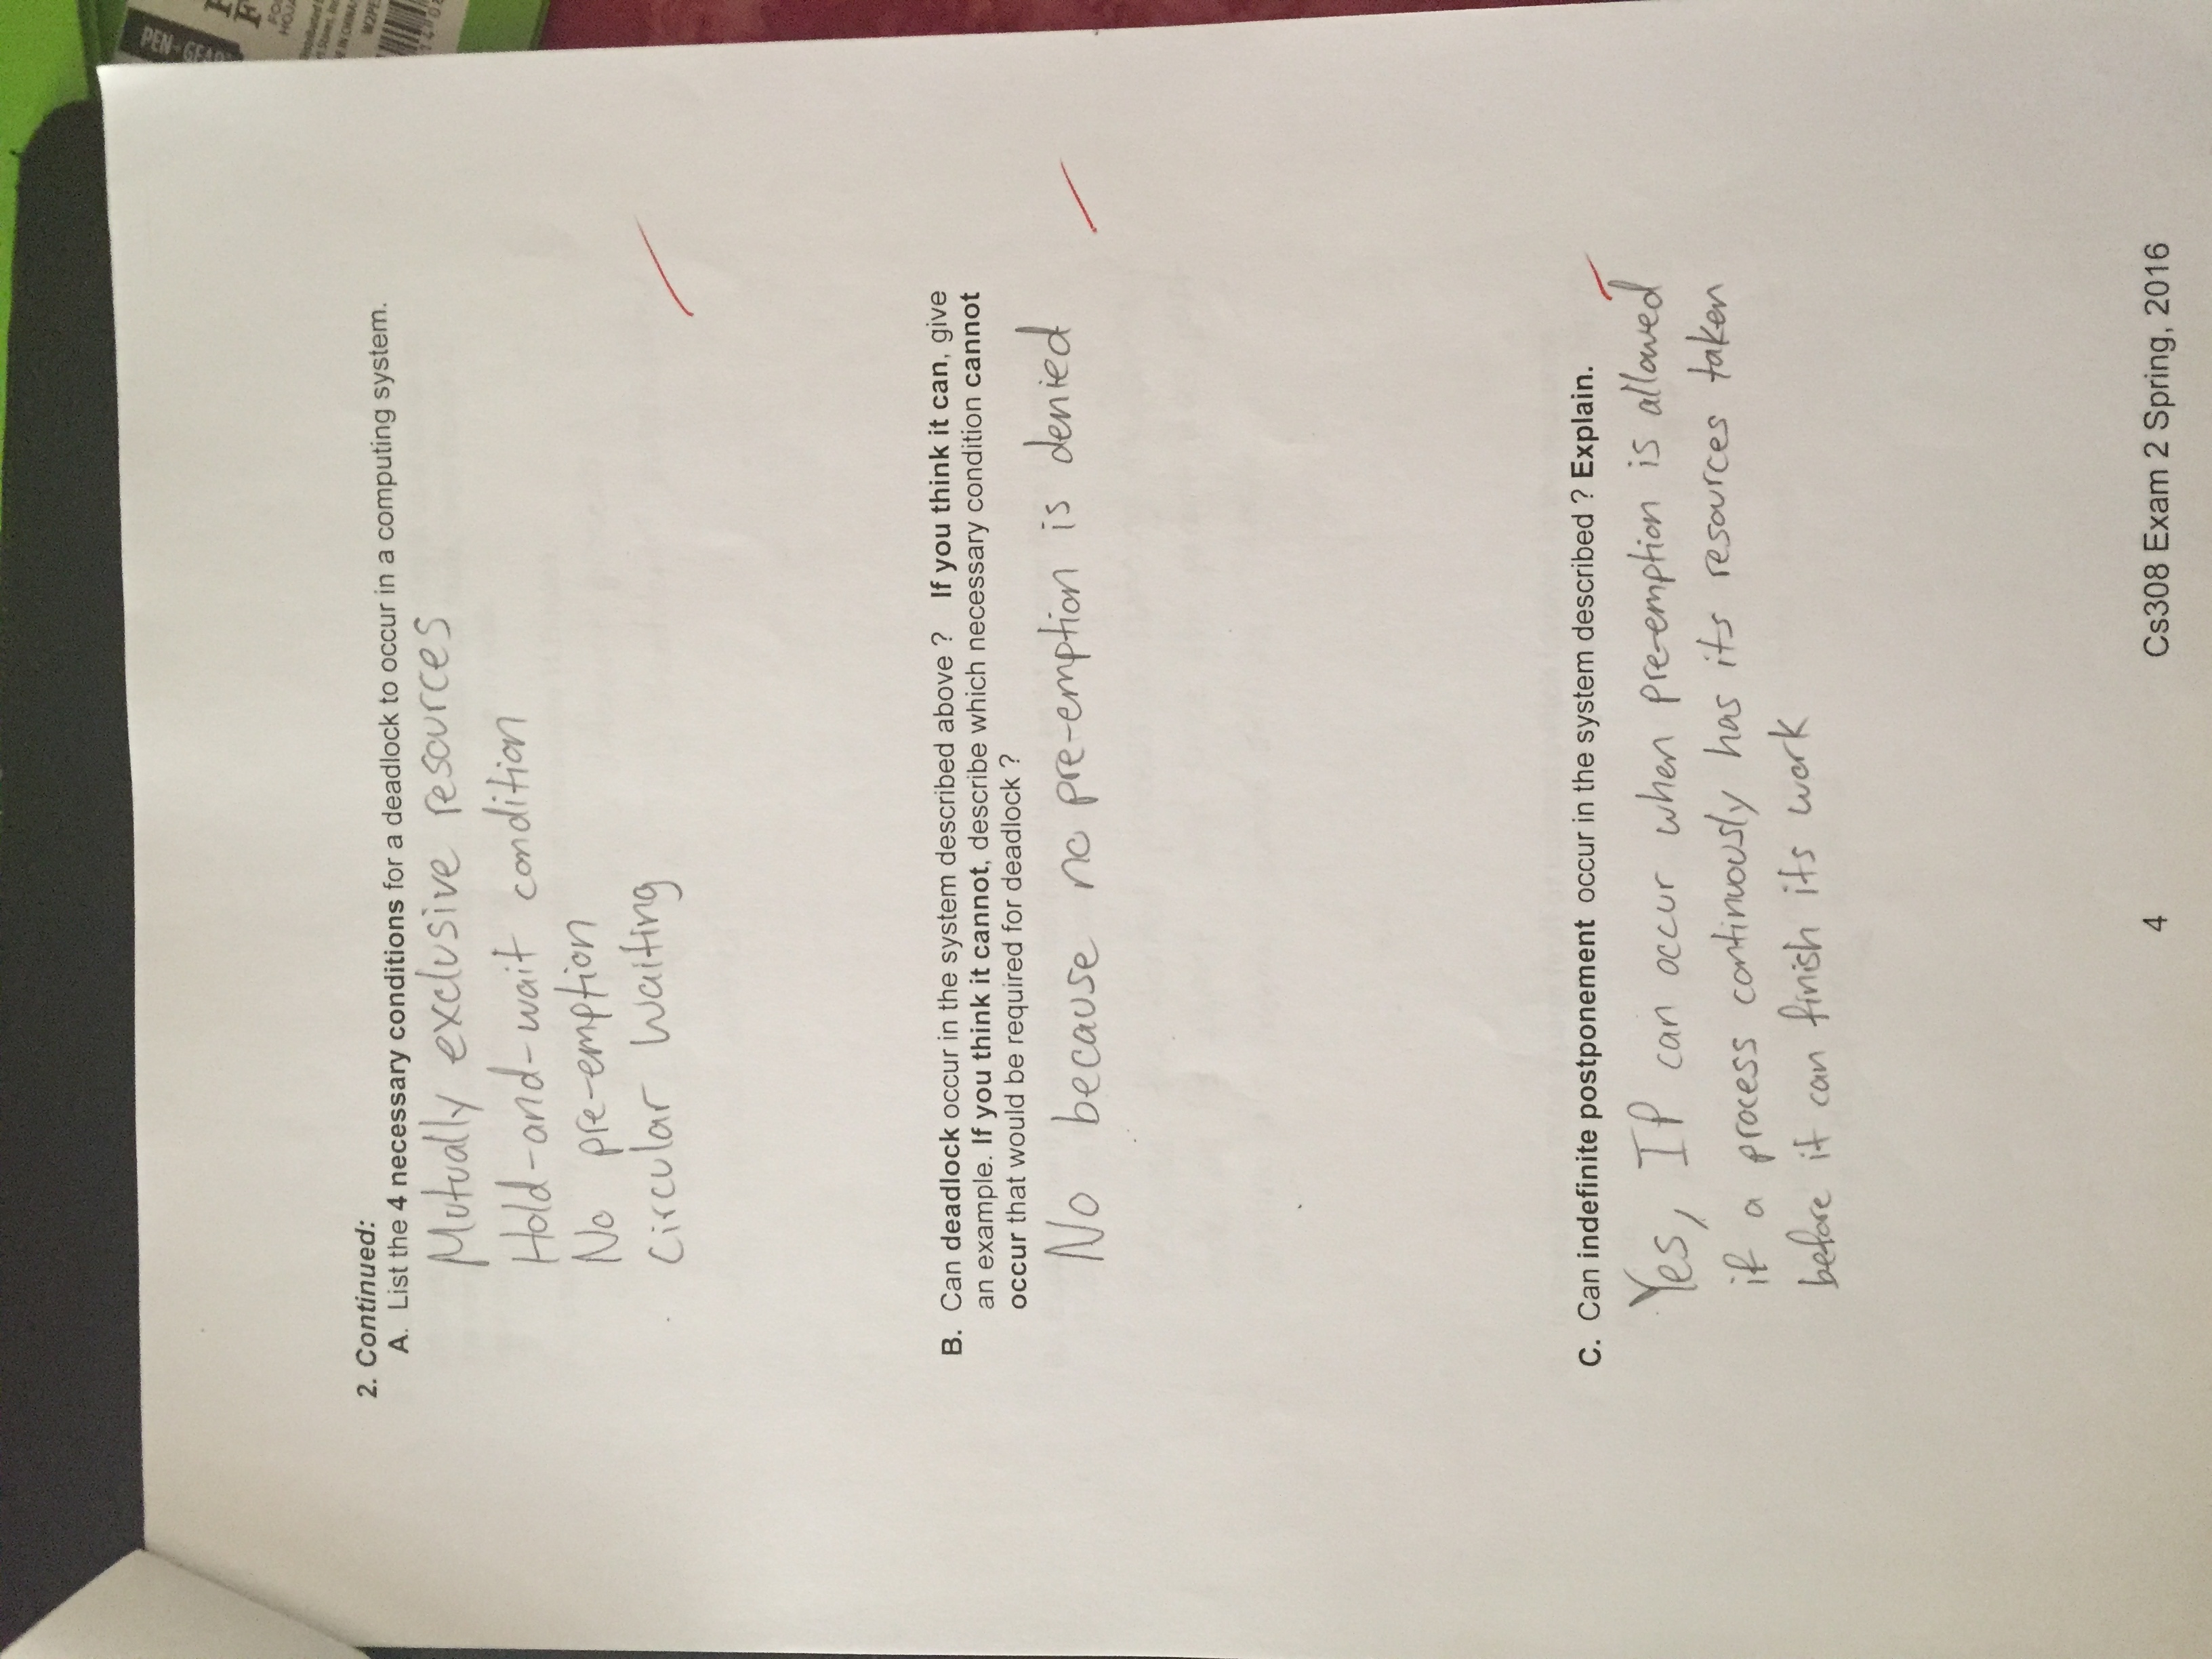 2. Continued:
A. List the 4 necessary conditions for a deadlock to occur in a computing system.
Mutually exclusive resources
Hold-and-wait condition
No pre-emption
Circular Waiting
B. Can deadlock occur in the system described above ? If you think it can, give
an example. If you think it cannot, describe which necessary condition cannot
occur that would be required for deadlock ?
No because no pre-emption is denied
C. Can indefinite postponement occur in the system described ? Explain.
Yes, IP can occur when pre-emption is allowed
if a process continuously has its resources taken
before it can finish its work
4 Cs308 Exam 2 Spring, 2016
PEN+GEAR
IN CHINA